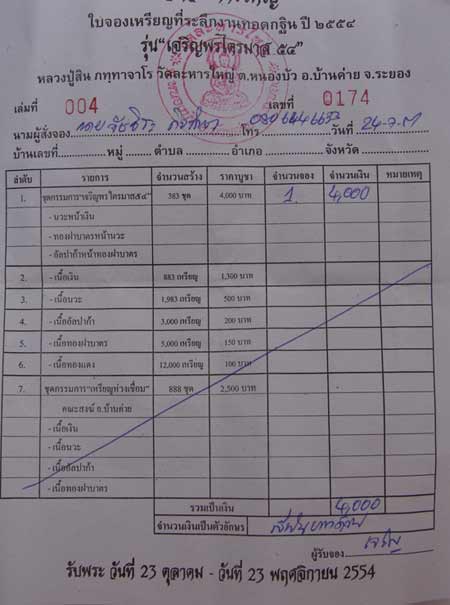 ใบจองเหรียญที่ระลึกงานทอดกฐิน ปี ๒๕๕๔
รุ่น"เจริญพรไตรมาส ๕๔"
หลวงปู่สิน ภทฺทาจาโร วัดละหารใหญ่ ต.หนองบัว อ.บ้านค่าย จ.ระยอง
เล่มที่ 004 เลขที่ 0174
นามผู้สั่งจอง โทร. วันที่
บ้านเลขที่ หมู่ ตำบล อำเภอ จังหวัด
ลำดับ รายการ จำนวนสร้าง ราคาบูชา จำนวนจอง จำนวนเงิน หมายเหตุ
1. ชุดกรรมการ"เจริญพรไตรมาส๕๔" 383 ชุด 4,000 บาท 1 4,000
- นวะหน้าเงิน
- ทองฝาบาตรหน้านวะ
- อัลปาก้าหน้าทองฝาบาตร
2. - เนื้อเงิน 883 เหรียญ 1,300 บาท
3. - เนื้อนวะ 1,983 เหรียญ 500 บาท
4. - เนื้ออัลปาก้า 3,000 เหรียญ 200 บาท
5. - เนื้อทองฝาบาตร 5,000 เหรียญ 150 บาท
6. - เนื้อทองแดง 12,000 เหรียญ 100 บาท
7. ชุดกรรมการ"เหรียญห่วงเชื่อม" 888 ชุด 2,500 บาท
คณะสงฆ์ อ.บ้านค่าย
- เนื้อเงิน
- เนื้อนวะ
- เนื้ออัลปาก้า
- เนื้อทองฝาบาตร
รวมเป็นเงิน 4,000
จำนวนเงินเป็นตัวอักษร สี่พันบาทถ้วน
ผู้รับจอง เจริญ
รับพระ วันที่ 23 ตุลาคม - วันที่ 23 พฤศจิกายน 2554